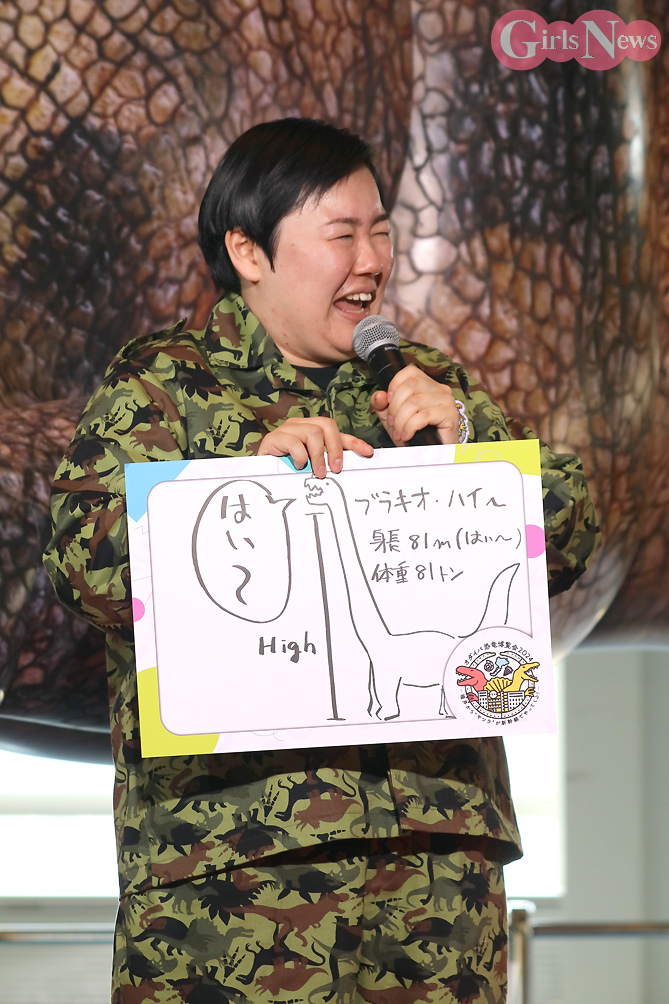 GirlsNews
はい〜
ブラキオ・ハイ〜
身長 81m(はい〜)
体重 81トン
High
オダイバ恐竜博覧会2024